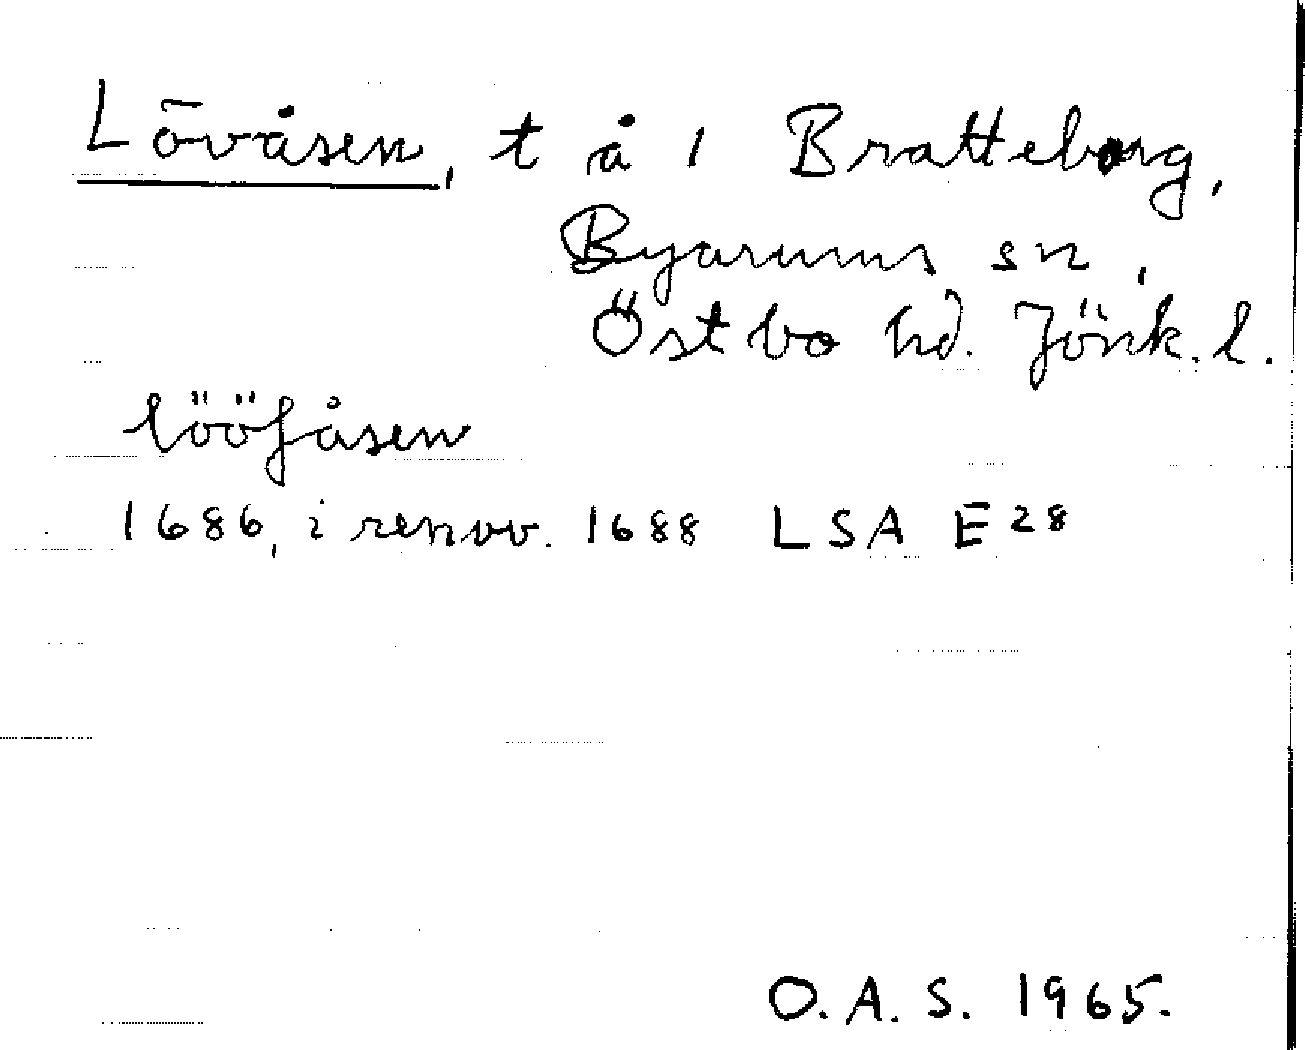 Lövåsen, t å 1 Bratteborg,
Byarums sn,
Östbo hd. Jönk. l.
lööfåsen
1686, i renov. 1688 LSA E28
O.A.S. 1965.